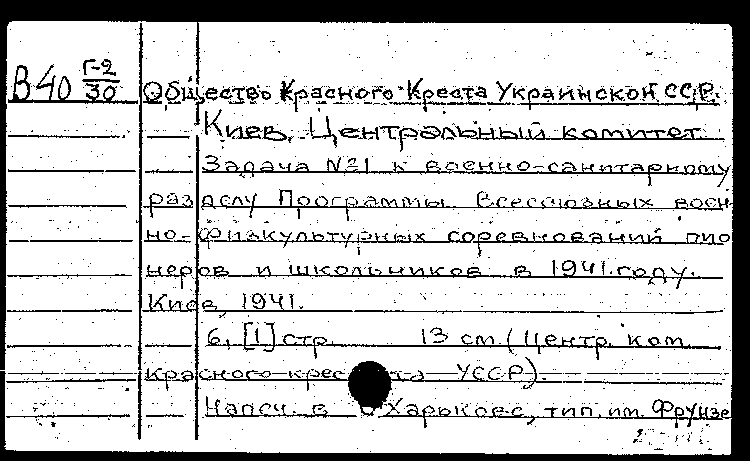 В40 Г-2/30
Общество Красного Креста Украинской ССР.
Киев. Центральный комитет.
Задача №1 к военно-санитарному
разделу Программы Всесоюзных воен-
но-физкультурных соревнований пио-
неров и школьников в 1941 году.
Киев, 1941.
6, [1] стр. 13 см. (Центр. ком.
Красного креста УССР).
Напеч. в Харькове, тип. им. Фрунзе